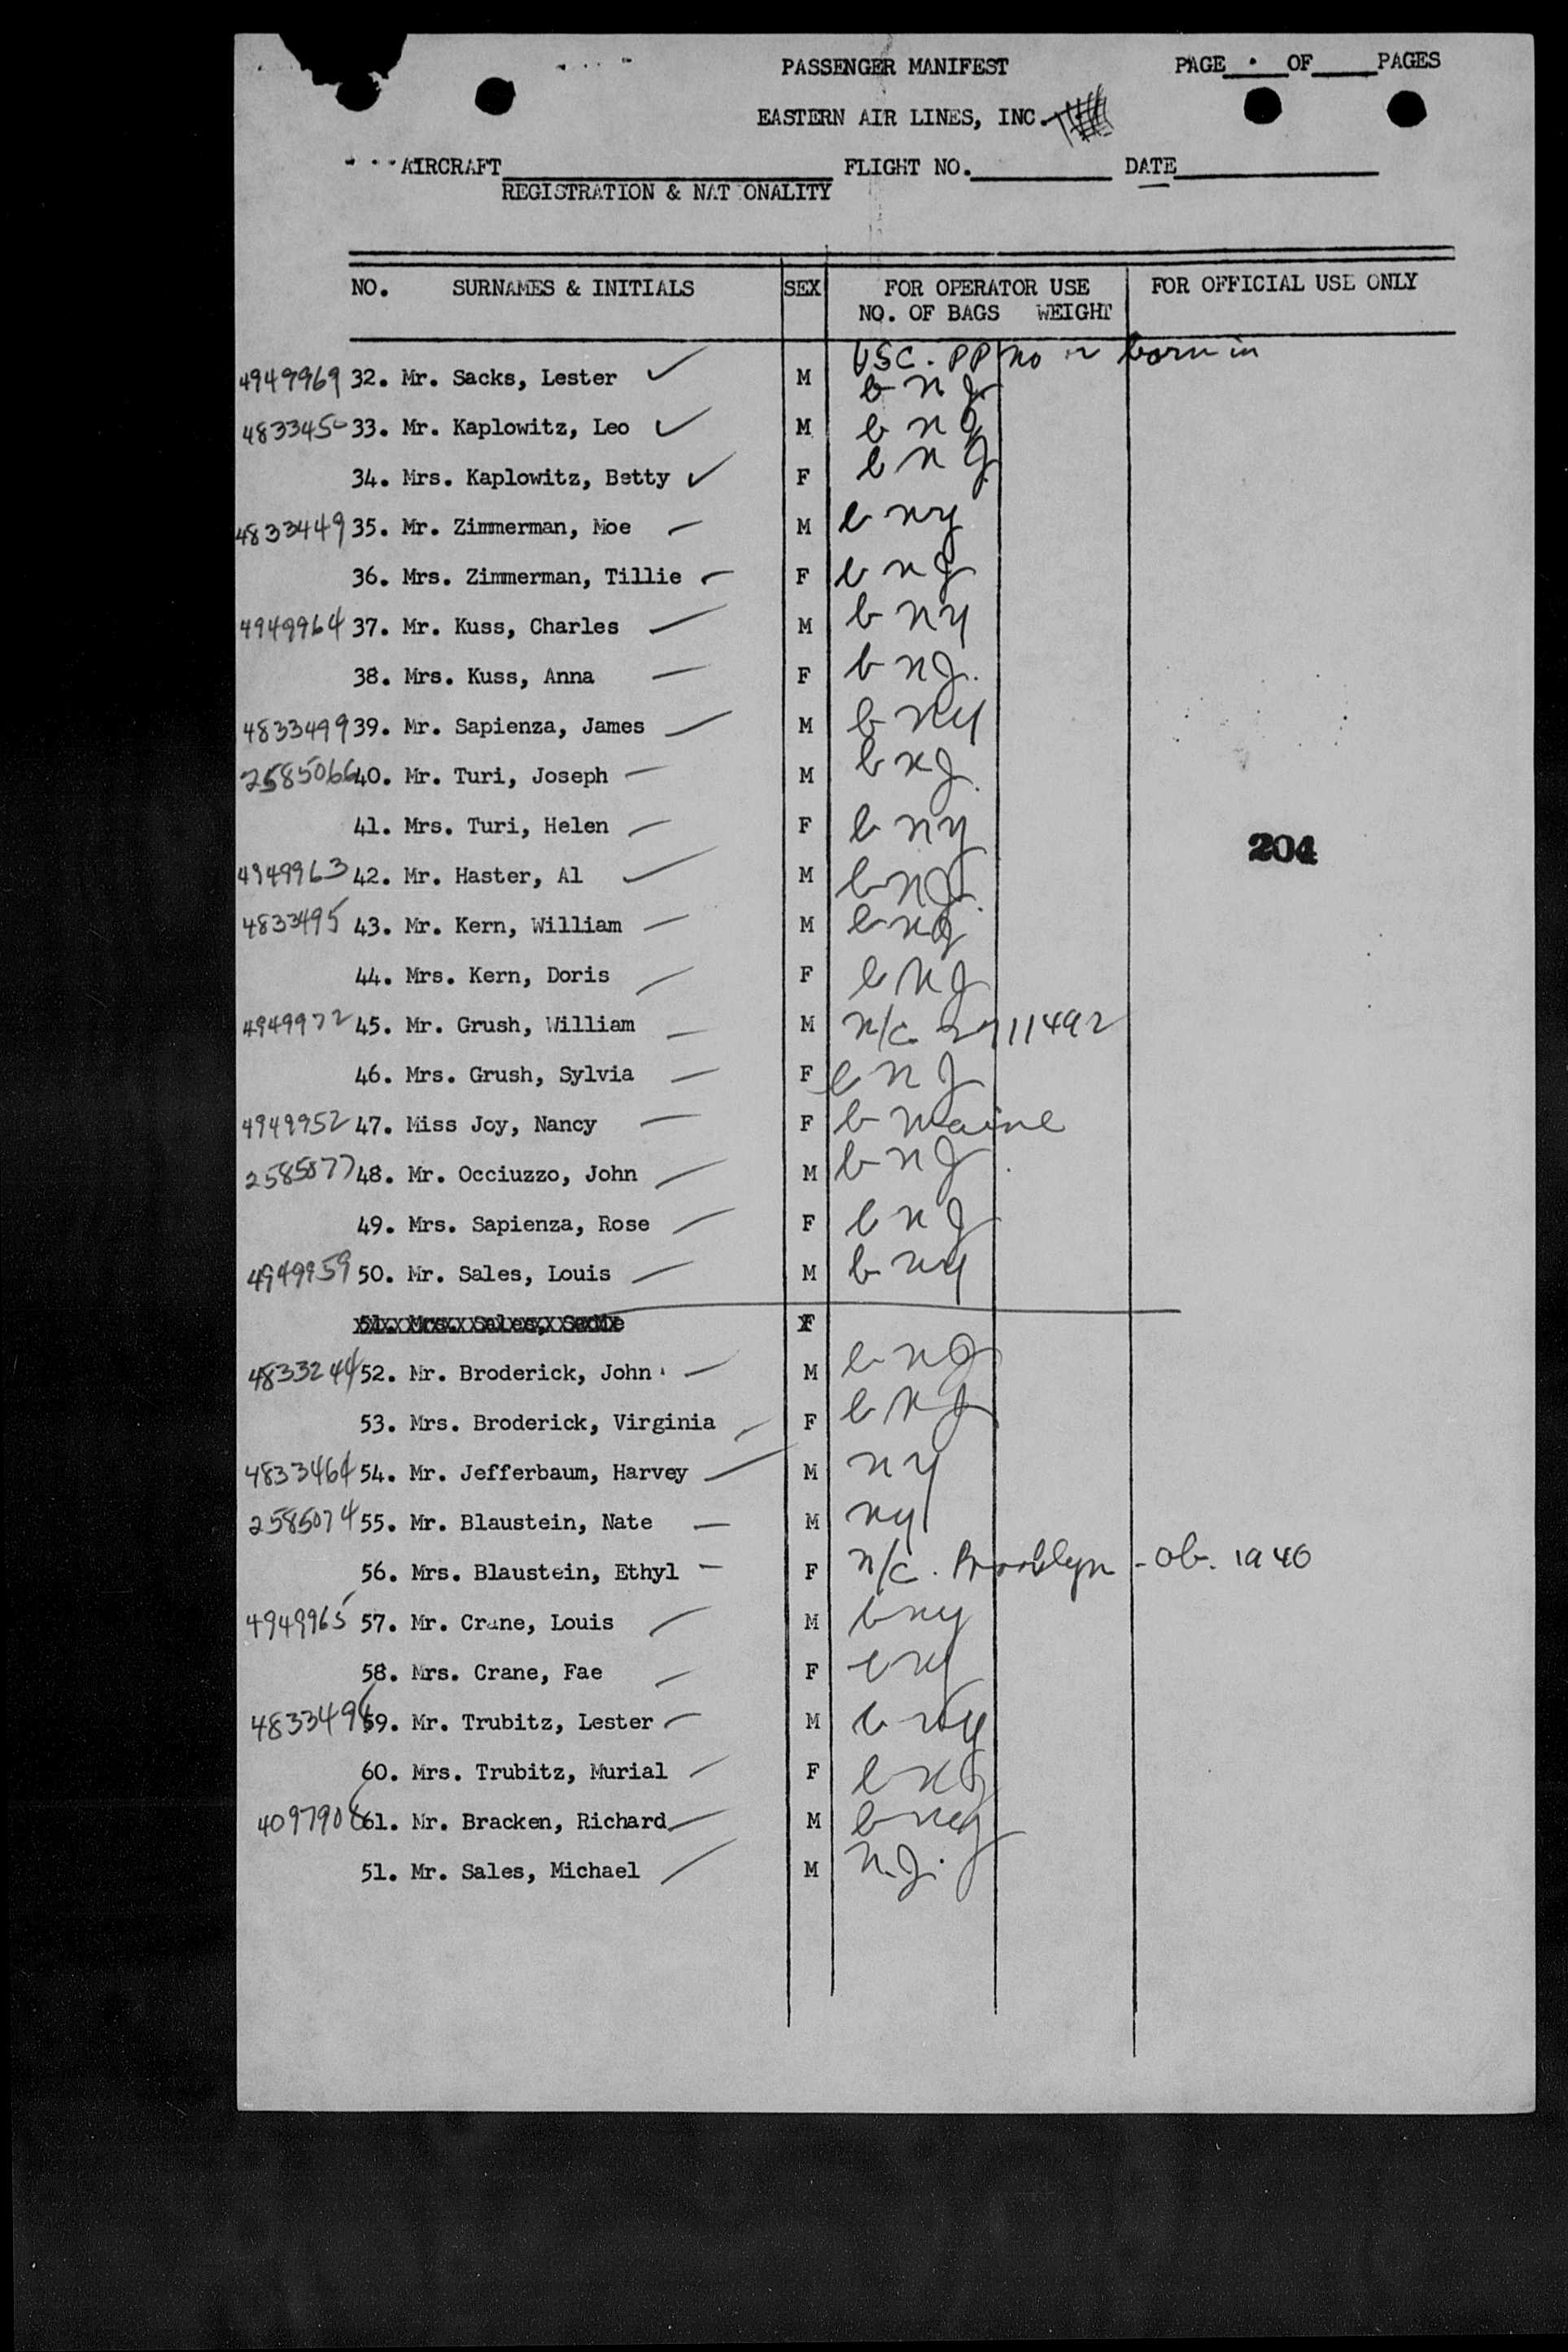 PASSENGER MANIFEST PAGE OF PAGES
EASTERN AIR LINES, INC.
AIRCRAFT FLIGHT NO. DATE
REGISTRATION & NAT ONALITY
NO. SURNAMES & INITIALS SEX FOR OPERATOR USE FOR OFFICIAL USE ONLY
NO. OF BAGS WEIGHT
USC. PP no or born in
4949969 32. Mr. Sacks, Lester M b n J
4833450 33. Mr. Kaplowitz, Leo M b n J
34. Mrs. Kaplowitz, Betty F b n J
4833449 35. Mr. Zimmerman, Moe M b ny
36. Mrs. Zimmerman, Tillie F b n J
4949964 37. Mr. Kuss, Charles M b ny
38. Mrs. Kuss, Anna F b n J.
4833499 39. Mr. Sapienza, James M b ny
2585066 40. Mr. Turi, Joseph M b n J.
41. Mrs. Turi, Helen F b ny
204
4949963 42. Mr. Haster, Al M b n J.
4833495 43. Mr. Kern, William M b n J
44. Mrs. Kern, Doris F b n J
4949972 45. Mr. Grush, William M n/c 2711492
46. Mrs. Grush, Sylvia F b n J
4949952 47. Miss Joy, Nancy F b Maine
2585077 48. Mr. Occiuzzo, John M b n J
49. Mrs. Sapienza, Rose F b n J
4949959 50. Mr. Sales, Louis M b ny
51. Mrs. Sales, Sadie F
4833244 52. Mr. Broderick, John M b n J
53. Mrs. Broderick, Virginia F b n J
4833464 54. Mr. Jefferbaum, Harvey M ny
2585074 55. Mr. Blaustein, Nate M ny
56. Mrs. Blaustein, Ethyl F n/c. Brooklyn - ob. 1940
4949965 57. Mr. Crane, Louis M b ny
58. Mrs. Crane, Fae F b ny
4833496 59. Mr. Trubitz, Lester M b ny
60. Mrs. Trubitz, Murial F b n J
4097906 61. Mr. Bracken, Richard M b ny
51. Mr. Sales, Michael M n.J.